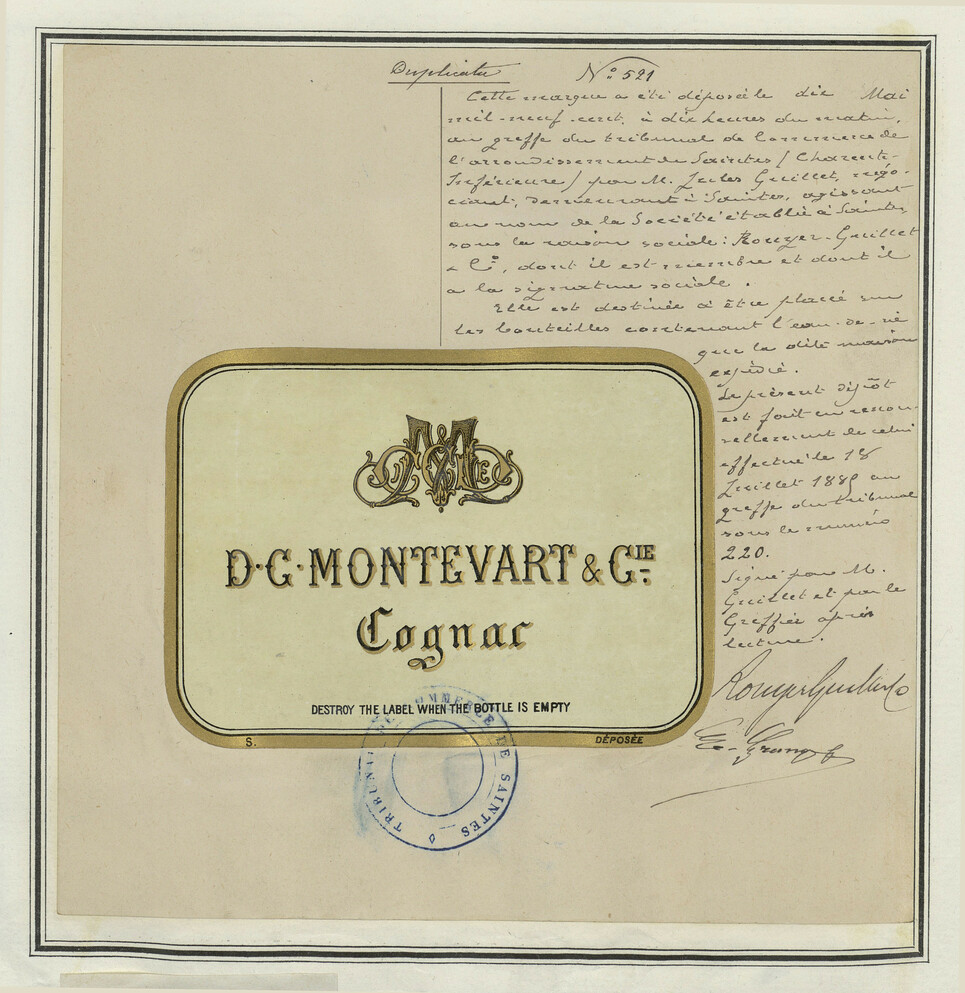 Duplicata
N° 521
Cette marque a été déposée le dix Mai
mil-neuf-cent, à dix heures du matin,
au greffe du tribunal de Commerce de
l'arrondissement de Saintes (Charente-
Inférieure) par M. Jules Guillet, négo-
ciant, demeurant à Saintes, agissant
au nom de la Société établie à Saintes,
sous la raison sociale: Rouyer-Guillet
& Cie, dont il est membre et dont il
a la signature sociale.
Elle est destinée à être placée sur
les bouteilles contenant l'eau-de-vie
que la dite maison
expédie.
Le présent dépôt
est fait en renou-
vellement de celui
effectué le 18
Juillet 1885 au
greffe du tribunal
sous le numéro
220.
Signé par M.
Guillet et par le
Greffier après
lecture.
Rouyer Guillet & Co
D·C·MONTEVART & CIE
Cognac
DESTROY THE LABEL WHEN THE BOTTLE IS EMPTY
S.
DÉPOSÉE
TRIBUNAL DE COMMERCE DE SAINTES